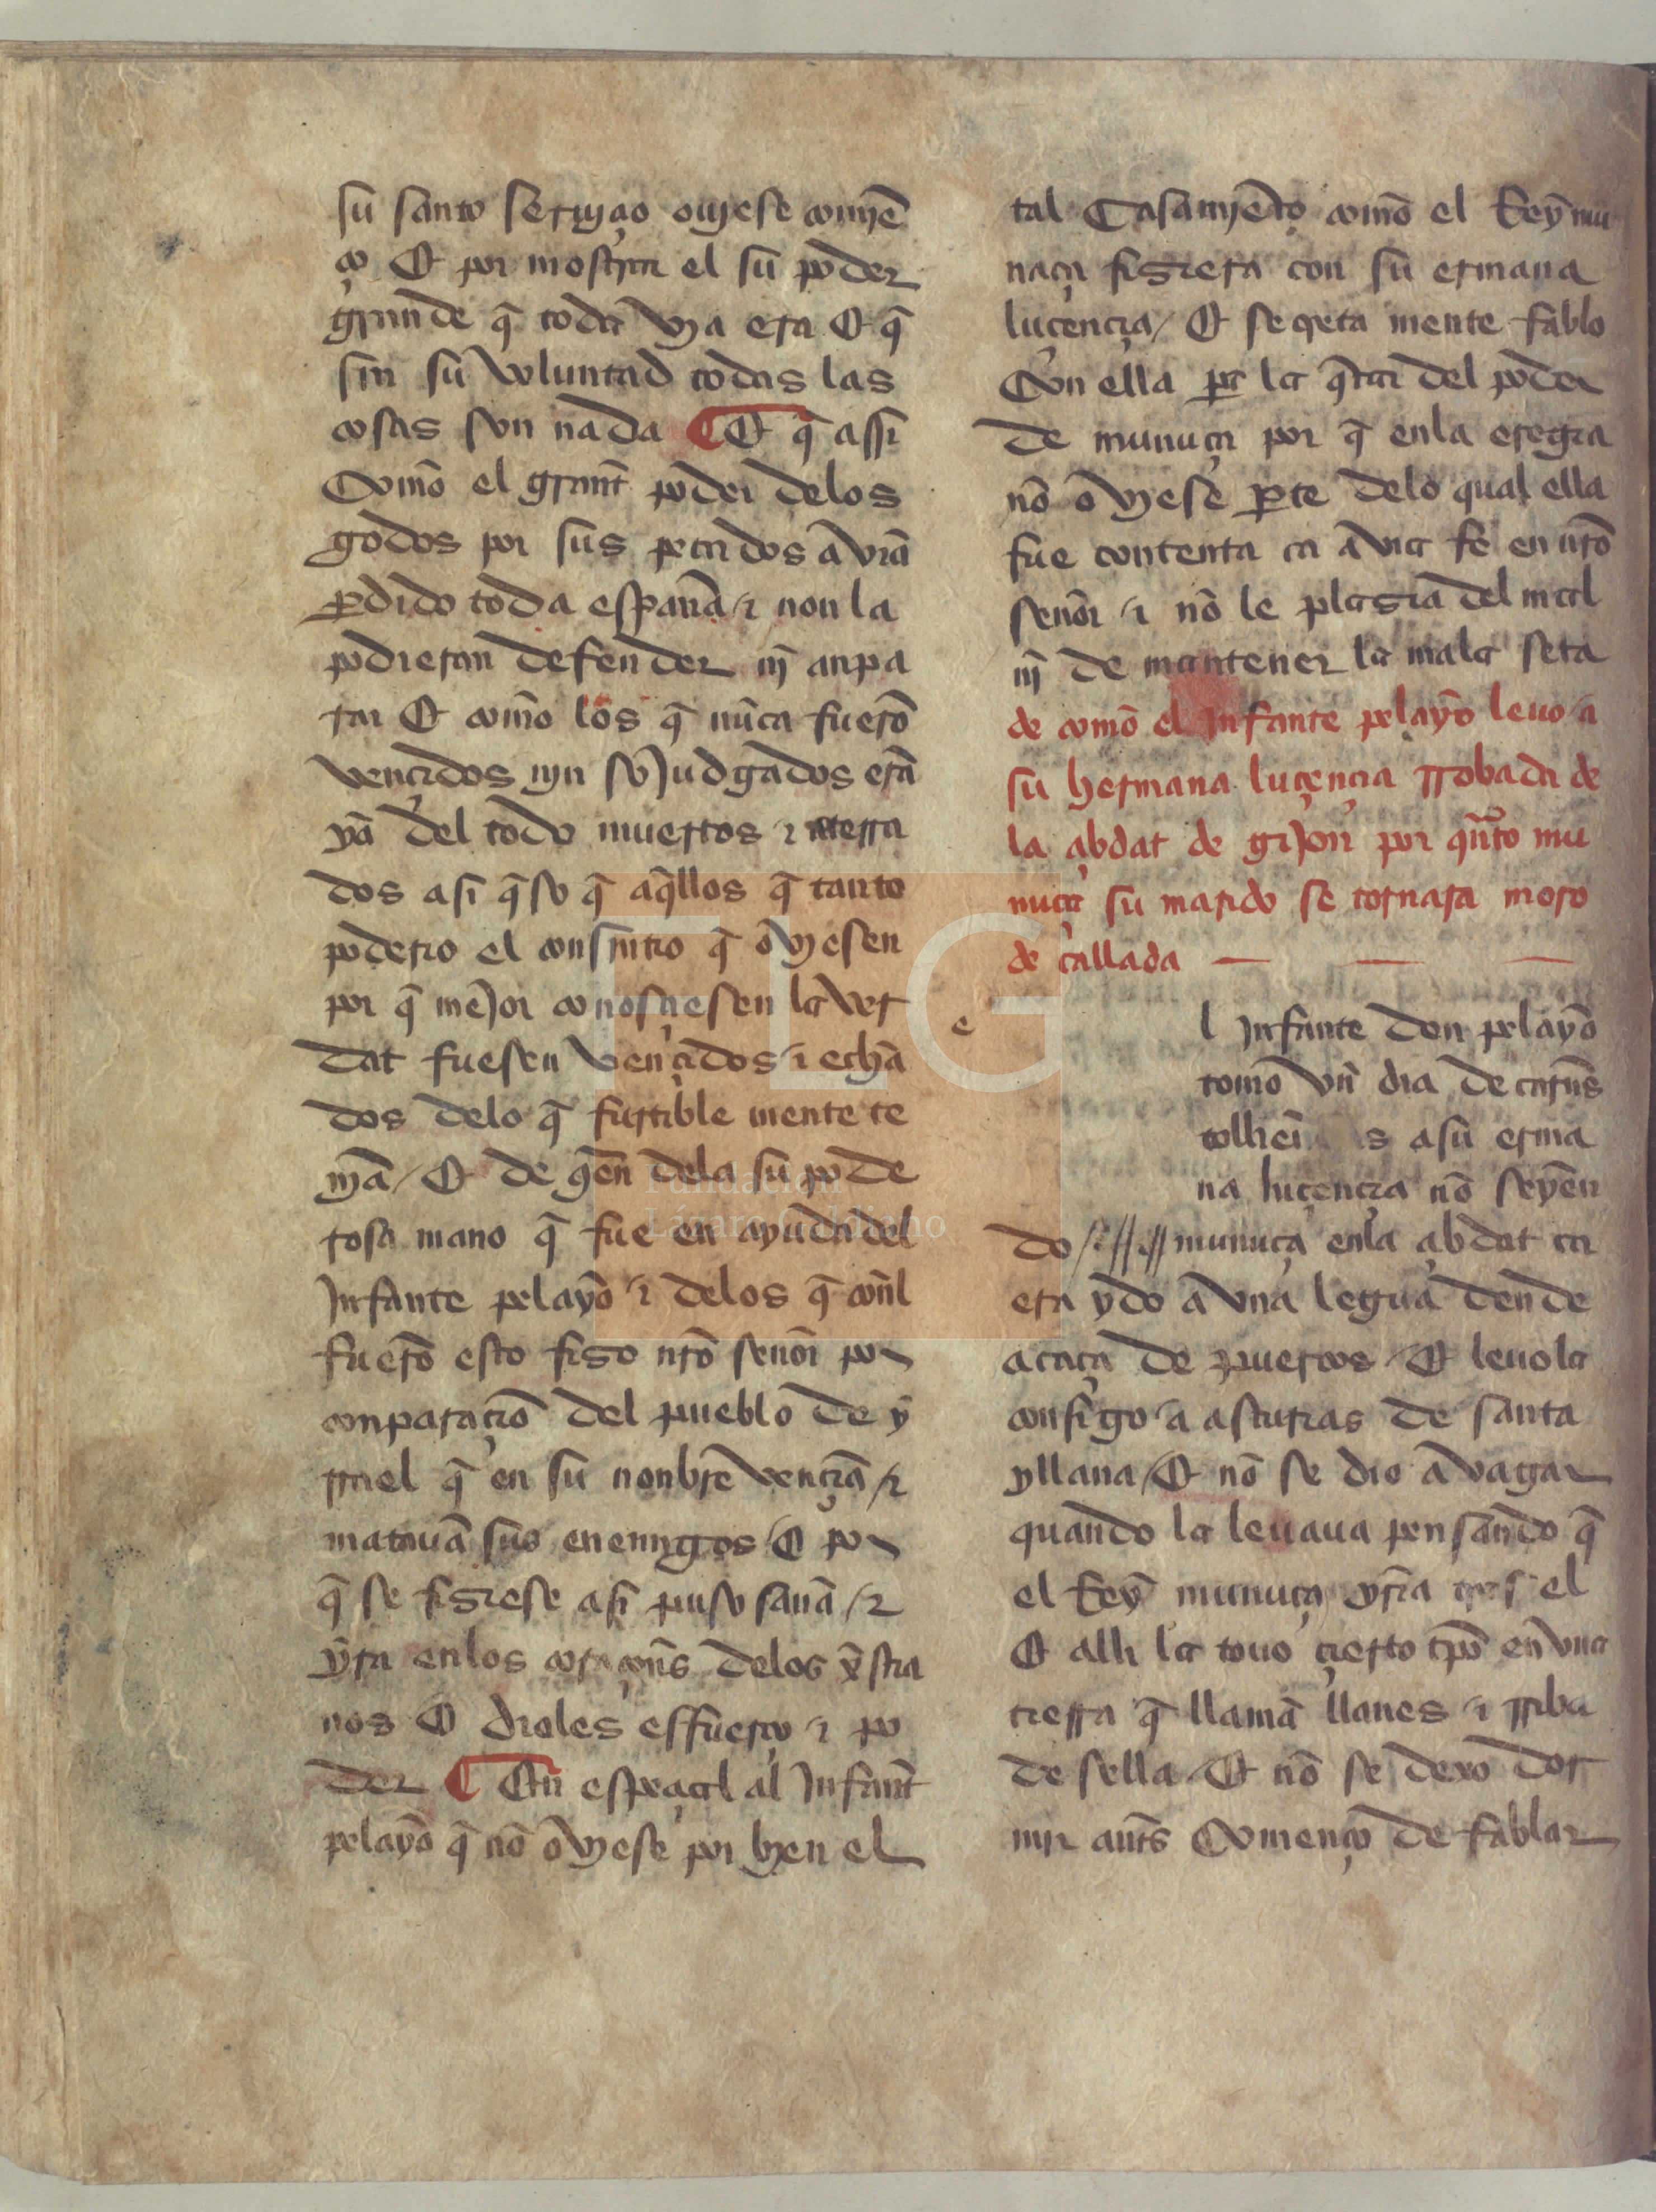 su santo seruyçio ouyese comyẽ
ço Et por mostrar el su poder
grande q̃ toda vya era Et q̃
sin su voluntad todas las
cosas son nada Et q̃ assi
Commo el grant̃ poder delos
godos por sus pecados aviã
ꝑdido toda españa ⁊ non la
podieran defender nỹ anpa
rar Et commo los q̃ nũca fuerõ
vençidos nyn sojudgados erã
ya del todo muertos ⁊ aterra
dos asi q̃so q̃ aq̃llos q̃ tanto
poderio el consintio q̃ ovyesen
por q̃ mejor conosçiesen la ver
dat fuesen vençidos ⁊ echa
dos delo q̃ furtible mente te
nyã / Et de q̃en dela su pode
rosa mano q̃ fue en ayuda del
Infante pelayo ⁊ delos q̃ conl̃
fuerõ esto fiso nr̃o señor por
conparaçiõ del pueblo de y
rrael q̃ en su nonbre vençiã / ⁊
matauã sus enemygos Et por
q̃ se fisiese asi puso sañã / ⁊
yra enlos coraçoñs delos xp̃stia
nos Et dioles esfuerço ⁊ po
der En espeçial al Infant̃
pelayo q̃ nõ ovyese por byen el
tal Casamyẽto commo el Rey mu
naça fisiera con su ermana
luçençia / Et secreta mente fablo
Con ella ꝑa la q̃tar del poder
de munuça por q̃ enla eregia
nõ ovyese ꝑte delo qual ella
fue contenta ca avia fe en nr̃o
señor ⁊ nõ le plasia del mal
nỹ de mantener la mala seta
de commo el Infante pelayo leuo a
su hermana luçençia rrobada de
la çibdat de gijon por qñto mu
nuça su marido se tornara moro
de callada
e
l Infante don pelayo
tomo vñ dia de
a su erma
na luçençia nõ seyen
do munuça enla çibdat ca
era ydo a vna legua dende
a caça de puercos Et leuola
consigo a asturias de santa
yllana / Et nõ se dio a vagar
quando la leuaua pensando q̃
el Rey munuça yria tras el
Et alli la touo çierto tp̃o en vna
tierra q̃ llamã llanes ⁊ rriba
de sella Et nõ se dexo dor
mir ant̃s Començo de fablar